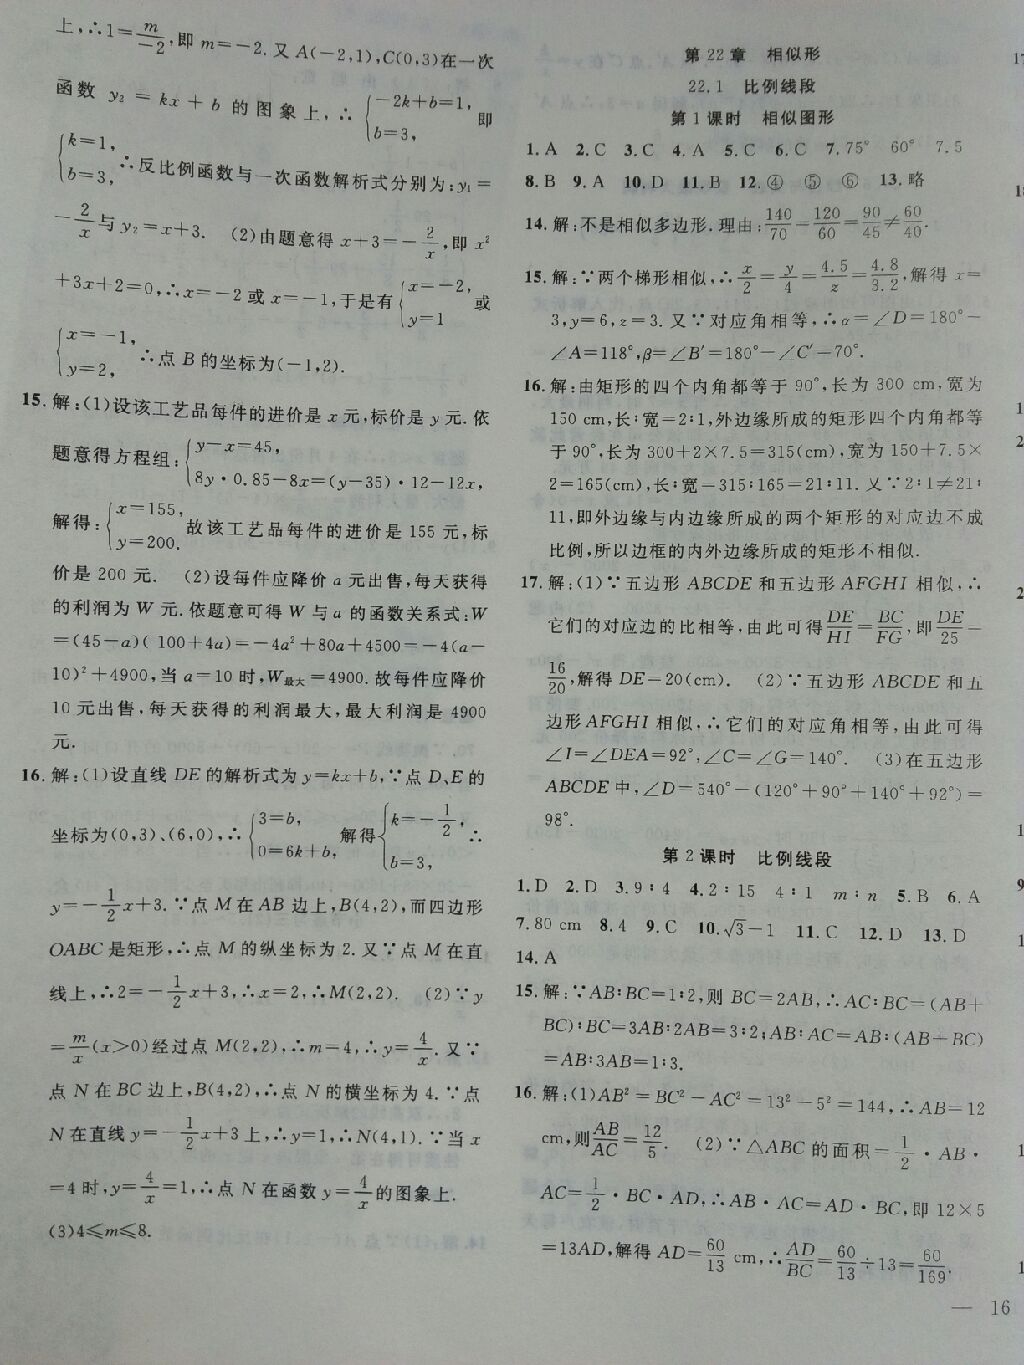 上,∴1=m/-2,即 m=-2.又 A(-2,1),C(0,3)在一次
函数 y₂ = kx + b 的图象上,∴{-2k+b=1, b=3, 即
{k=1, b=3, ∴反比例函数与一次函数解析式分别为:y₁=
-2/x与 y₂=x+3. (2)由题意得 x+3=-2/x,即 x²
+3x+2=0,∴x=-2 或 x=-1,于是有{x=-2, y=1 或
{x=-1, y=2, ∴点 B 的坐标为(-1,2).
15.解:(1)设该工艺品每件的进价是 x 元,标价是 y 元.依
题意得方程组:{y-x=45, 8y·0.85-8x=(y-35)·12-12x,
解得:{x=155, y=200. 故该工艺品每件的进价是 155 元,标
价是 200 元. (2)设每件应降价 a 元出售,每天获得
的利润为 W 元.依题意可得 W 与 a 的函数关系式:W
=(45-a)(100+4a)=-4a²+80a+4500=-4(a-
10)²+4900,当 a=10 时,W最大=4900.故每件应降价
10 元出售,每天获得的利润最大,最大利润是 4900
元.
16.解:(1)设直线 DE 的解析式为 y=kx+b,∵点 D、E 的
坐标为(0,3)、(6,0),∴{3=b, 0=6k+b, 解得{k=-1/2, b=3, ∴
y=-1/2x+3.∵点 M 在 AB 边上,B(4,2),而四边形
OABC 是矩形,∴点 M 的纵坐标为 2.又∵点 M 在直
线上,∴2=-1/2x+3,∴x=2,∴M(2,2). (2)∵y
=m/x(x>0)经过点 M(2,2),∴m=4,∴y=4/x.又∵
点 N 在 BC 边上,B(4,2),∴点 N 的横坐标为 4.∵点
N 在直线 y=-1/2x+3 上,∴y=1,∴N(4,1).∵当 x
=4 时,y=4/x=1,∴点 N 在函数 y=4/x的图象上.
(3)4≤m≤8.
第 22 章 相似形
22.1 比例线段
第 1 课时 相似图形
1.A 2.C 3.C 4.A 5.C 6.C 7.75° 60° 7.5
8.B 9.A 10.D 11.B 12.④ ⑤ ⑥ 13.略
14.解:不是相似多边形.理由:140/70=120/60=90/45≠60/40.
15.解:∵两个梯形相似,∴x/2=y/4=4.5/z=4.8/3.2,解得 x=
3,y=6,z=3.又∵对应角相等,∴α=∠D=180°-
∠A=118°,β=∠B′=180°-∠C′=70°.
16.解:由矩形的四个内角都等于 90°,长为 300 cm,宽为
150 cm,长∶宽=2∶1,外边缘所成的矩形四个内角都等
于 90°,长为 300+2×7.5=315(cm),宽为 150+7.5×
2=165(cm),长∶宽=315∶165=21∶11.又∵2∶1≠21∶
11,即外边缘与内边缘所成的两个矩形的对应边不成
比例,所以边框的内外边缘所成的矩形不相似.
17.解:(1)∵五边形 ABCDE 和五边形 AFGHI 相似,∴
它们的对应边的比相等,由此可得DE/HI=BC/FG,即DE/25=
16/20,解得 DE=20(cm). (2)∵五边形 ABCDE 和五
边形 AFGHI 相似,∴它们的对应角相等,由此可得
∠I=∠DEA=92°,∠C=∠G=140°. (3)在五边形
ABCDE 中,∠D=540°-(120°+90°+140°+92°)=
98°.
第 2 课时 比例线段
1.D 2.D 3.9∶4 4.2∶15 4∶1 m∶n 5.B 6.A
7.80 cm 8.4 9.C 10.√3-1 11.C 12.D 13.D
14.A
15.解:∵AB∶BC=1∶2,则 BC=2AB,∴AC∶BC=(AB+
BC)∶BC=3AB∶2AB=3∶2;AB∶AC=AB∶(AB+BC)
=AB∶3AB=1∶3.
16.解:(1)AB²=BC²-AC²=13²-5²=144,∴AB=12
cm,则AB/AC=12/5. (2)∵△ABC 的面积=1/2·AB·
AC=1/2·BC·AD,∴AB·AC=AD·BC,即 12×5
=13AD,解得 AD=60/13 cm,∴AD/BC=60/13÷13=60/169.
— 16